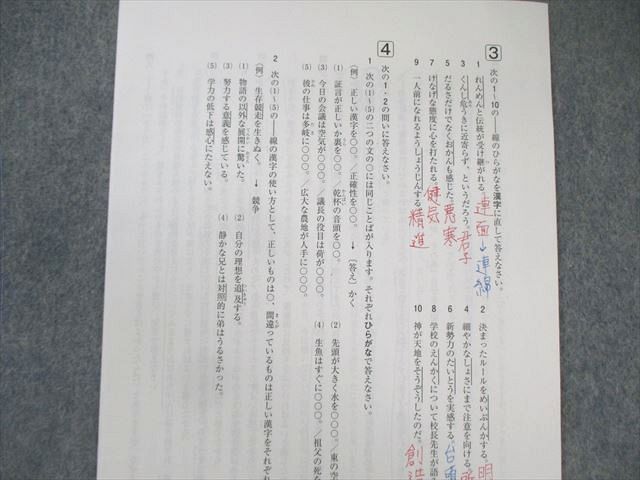 3
次の1~10の――線のひらがなを漢字に直して答えなさい。
1 れんめんと伝統が受け継がれる。 連面→連綿
2 決まったルールをめいぶんかする。 明
3 くんし危うきに近寄らず、というだろう。 君子
4 細やかなしょさにまで注意を向ける。 所
5 だるさだけでなくおかんも感じた。 悪寒
6 新勢力のたいとうを実感する。 台頭
7 けなげな態度に心を打たれる。 健気
8 学校のえんかくについて校長先生が語
9 一人前になれるようしょうじんする。 精進
10 神が天地をそうぞうしたのだ。 創造
4
次の1・2の問いに答えなさい。
1 次の(1)~(5)の二つの文の○には同じことばが入ります。それぞれひらがなで答えなさい。
(例) 正しい漢字を○○。/正確性を○○。 → 〔答え〕かく
(1) 証言が正しいか裏を○○。/乾杯の音頭を○○。
(2) 先頭が大きく水を○○○。/東の空
(3) 今日の会議は空気が○○○。/議長の役目は荷が○○○。
(4) 生魚はすぐに○○○。/祖父の死な
(5) 彼の仕事は多岐に○○○。/広大な農地が人手に○○○。
2 次の(1)~(5)の――線の漢字の使い方として、正しいものは○、間違っているものは正しい漢字をそれぞれ
(例) 生存競走を生きぬく。 → 競争
(1) 物語の以外な展開に驚いた。
(2) 自分の理想を追及する。
(3) 努力する意義を感じている。
(4) 静かな兄とは対照的に弟はうるさかった。
(5) 学力の低下は感心にたえない。